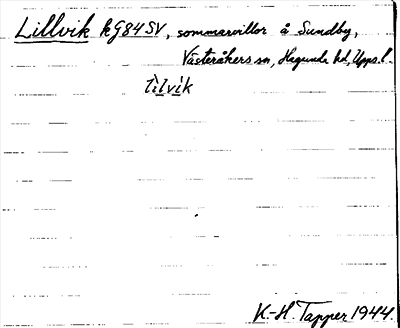 Lillvik kG84SV, sommarvillor å Sundby,
Västeråkers sn, Hagunda hd, Upps. l.
lìlvik
K.-H. Tapper 1944.